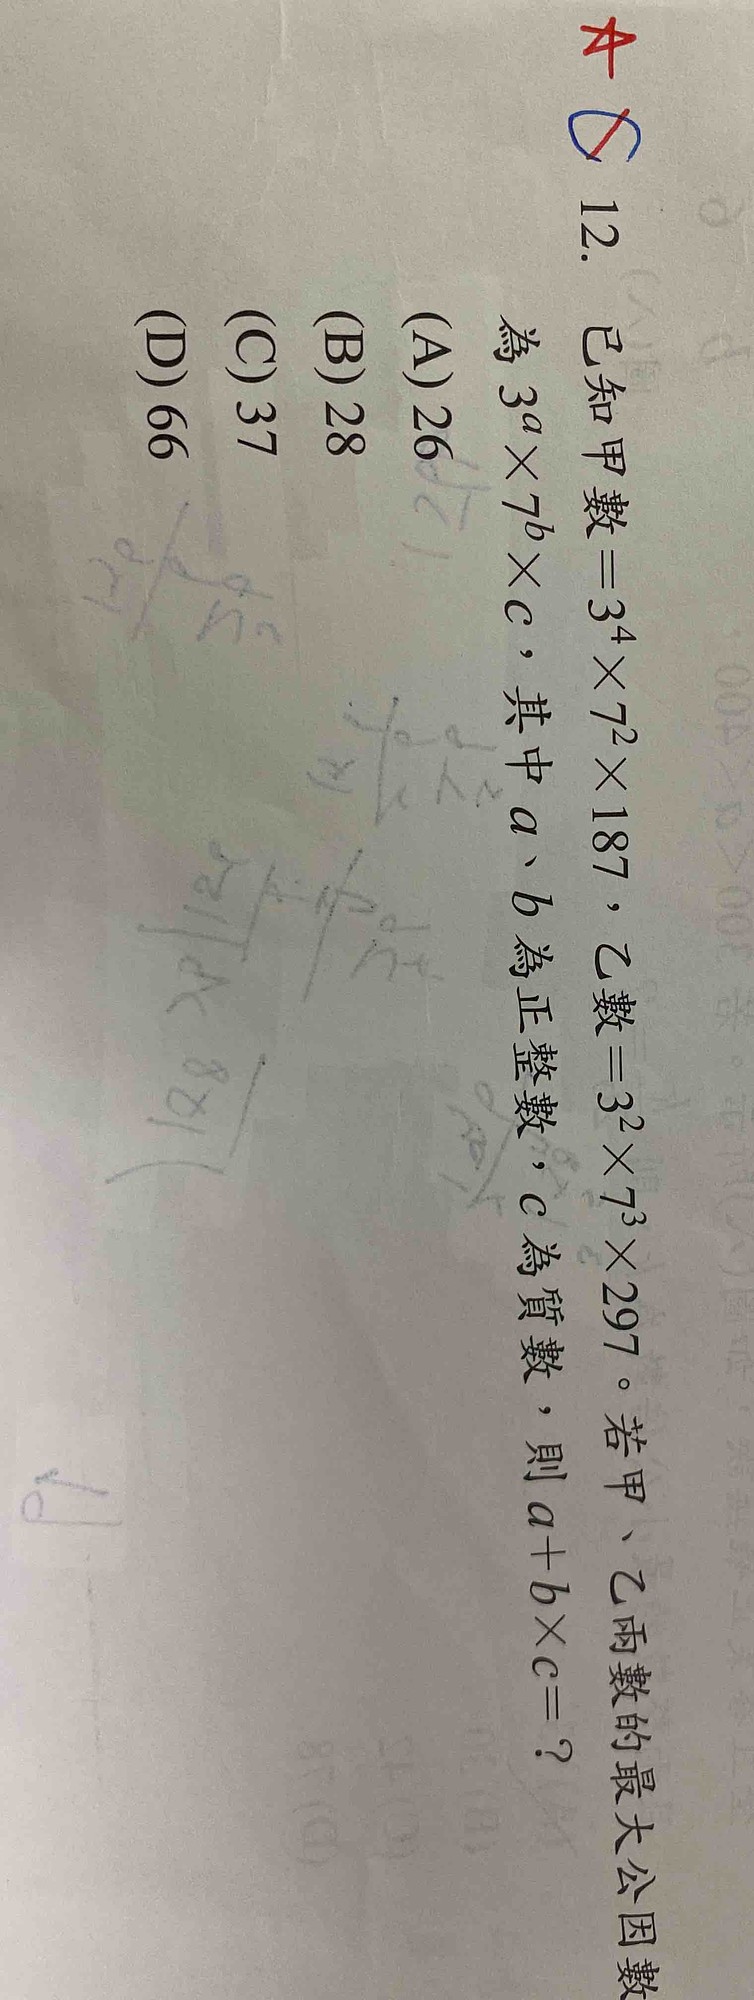 12. 已知甲數＝3⁴×7²×187，乙數＝3²×7³×297。若甲、乙兩數的最大公因數
為 3ᵃ×7ᵇ×c，其中 a、b 為正整數，c 為質數，則 a＋b×c＝？
(A) 26
(B) 28
(C) 37
(D) 66